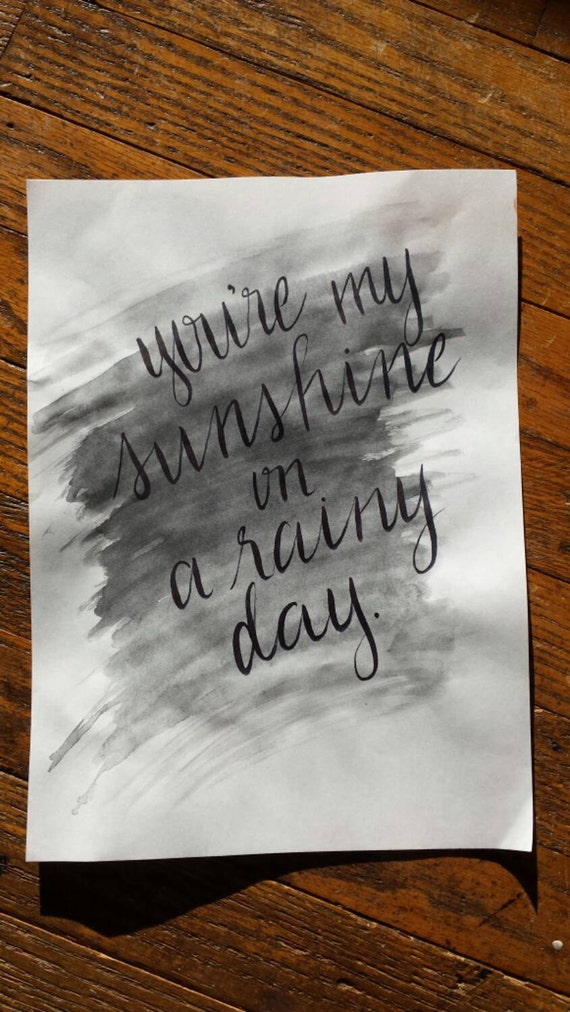 you're my
sunshine
on
a rainy
day.